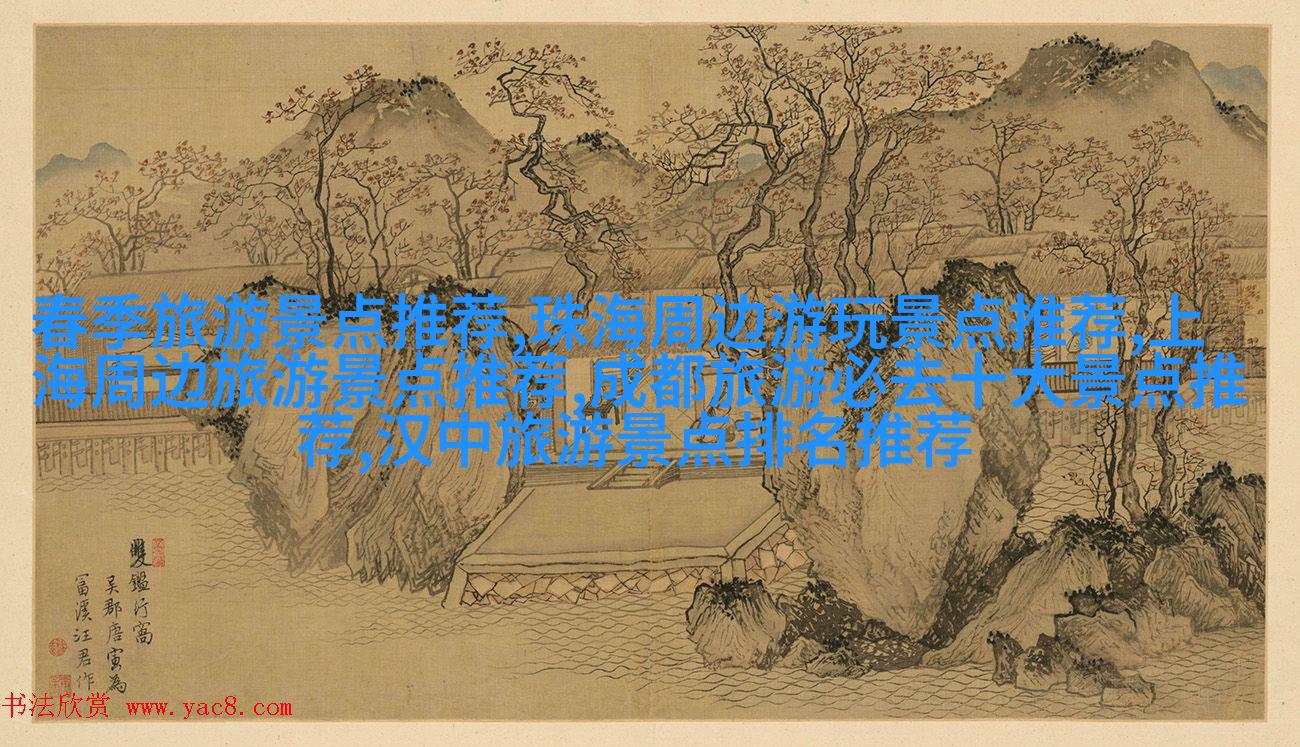 春季旅游景点推荐,珠海周边游玩景点推荐,上
海周边旅游景点推荐,成都旅游必去十大景点推
荐,汉中旅游景点排名推荐
雙鑑行窩
吴郡唐寅為
富溪汪君作
书法欣赏 www.yac8.com